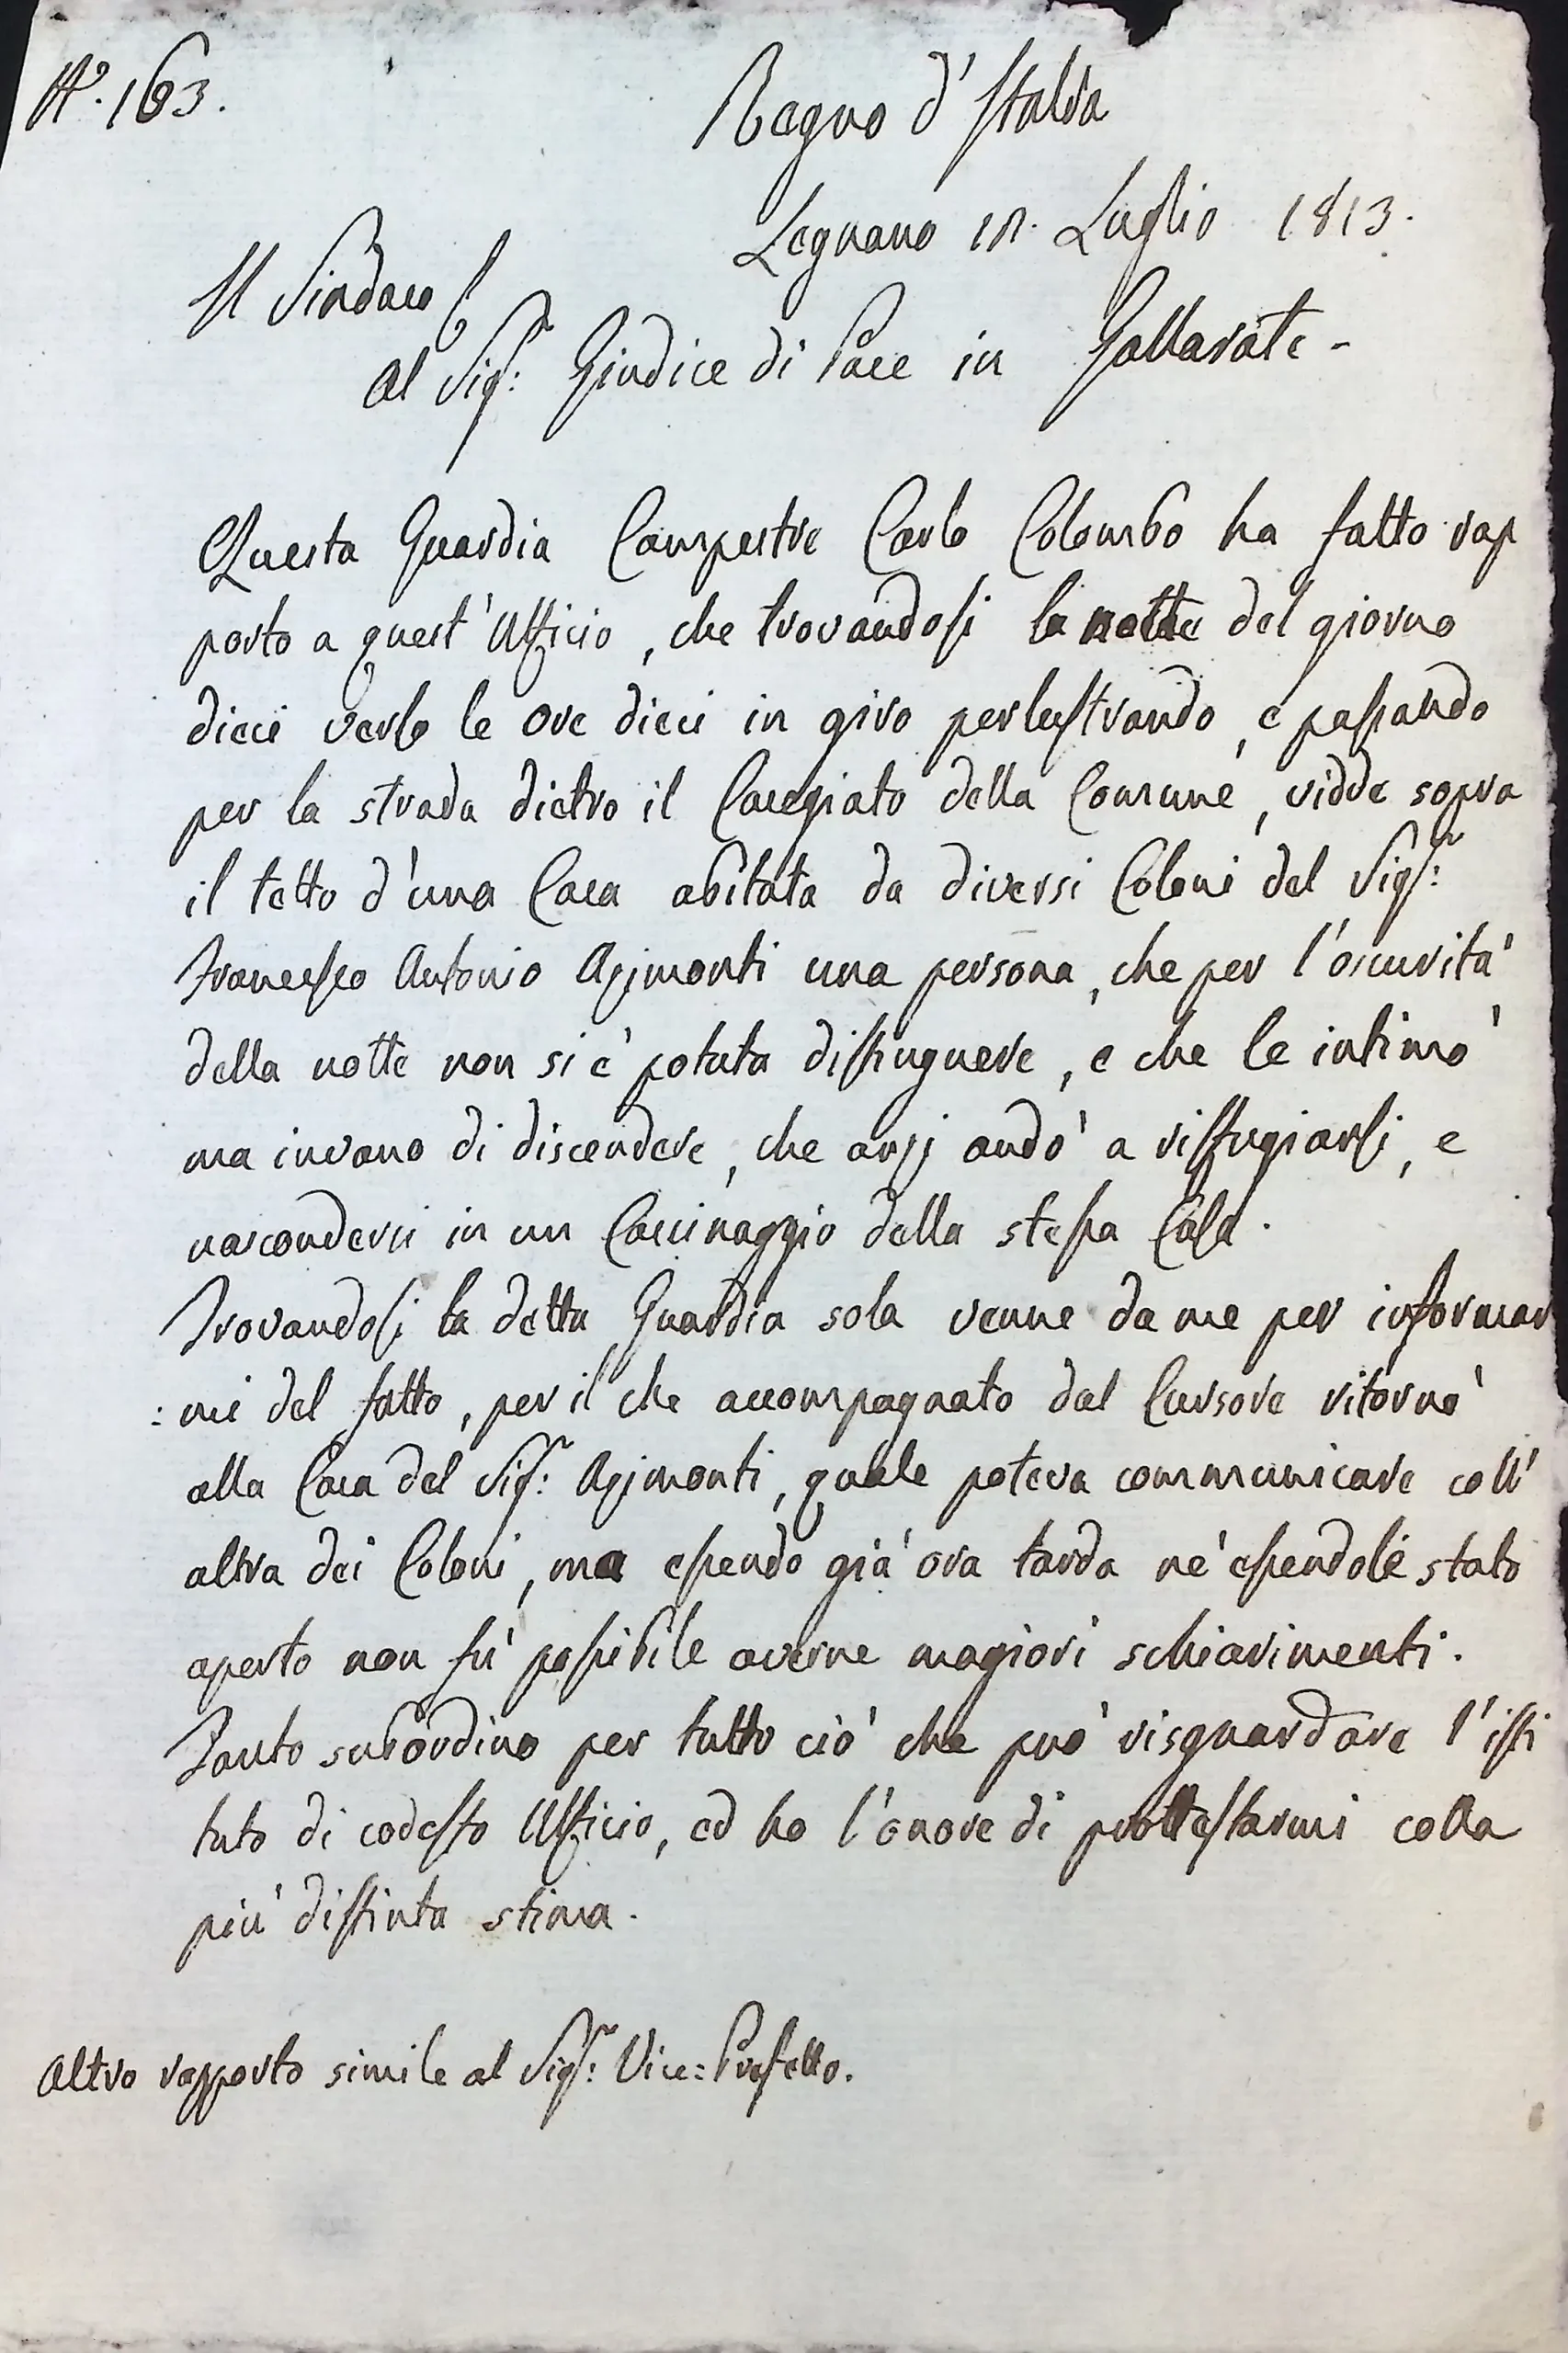 N.° 163.
Regno d'Italia
Legnano Luglio 1813.
Il Sindaco
Al Sigr: Giudice di Pace in Gallarate -
Questa Guardia Campestre Carlo Colombo ha fatto rap
porto a quest'Ufficio, che trovandosi la notte del giorno
dieci verso le ore dieci in giro perlustrando, e passando
per la strada dietro il Casegiato della Comune, vidde sopra
il tetto d'una Casa abitata da diversi Coloni del Sigr:
Francesco Antonio Azimonti una persona, che per l'oscurità
della notte non si è potuta distinguere, e che le intimò
ma invano di discendere, che anzj andò a riffugiarsi, e
nascondersi in un Cassinaggio della stessa Casa.
Trovandosi la detta Guardia sola venne da me per informar
:mi del fatto, per il che accompagnato dal Cursore ritornò
alla Casa del Sigr: Azimonti, quale poteva communicare coll'
altra dei Coloni, ma essendo già ora tarda nè essendole stato
aperto non fù possibile averne magiori schiarimenti.
Tanto subordino per tutto ciò che può risguardare l'isti
tuto di codesto Ufficio, ed ho l'onore di prottestarmi colla
più distinta stima.
Altro rapporto simile al Sigr: Vice=Prefetto.